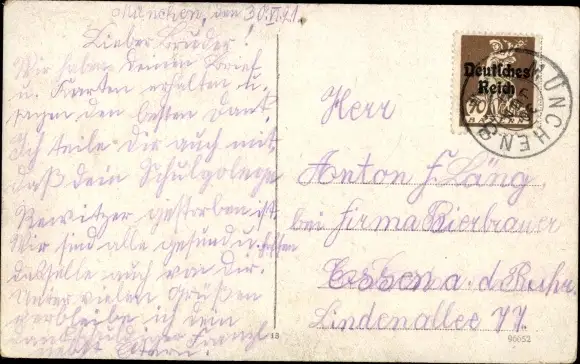 München, den 30.VI.21
Lieber Bruder!
Wir haben deinen Brief
u. Karten erhalten u.
sagen den besten Dank.
Ich teile dir auch mit,
daß dein Schulkolege
Rewitzer gestorben ist.
Wir sind alle gesund u. hoffen
dasselbe auch von dir.
Unter vielen Grüßen
verbleibe ich dein
Franzl
Eltern!
Deutsches
Reich
MÜNCHEN
Herr
Anton F. Läng
bei Firma Bierbrauer
Essen a. d. Ruhr.
Lindenallee 77.
18
90052